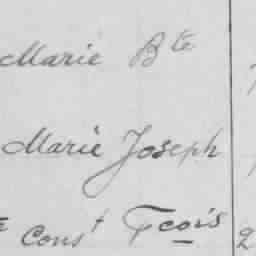 Marie Bte
Marie Joseph
Const Fcois